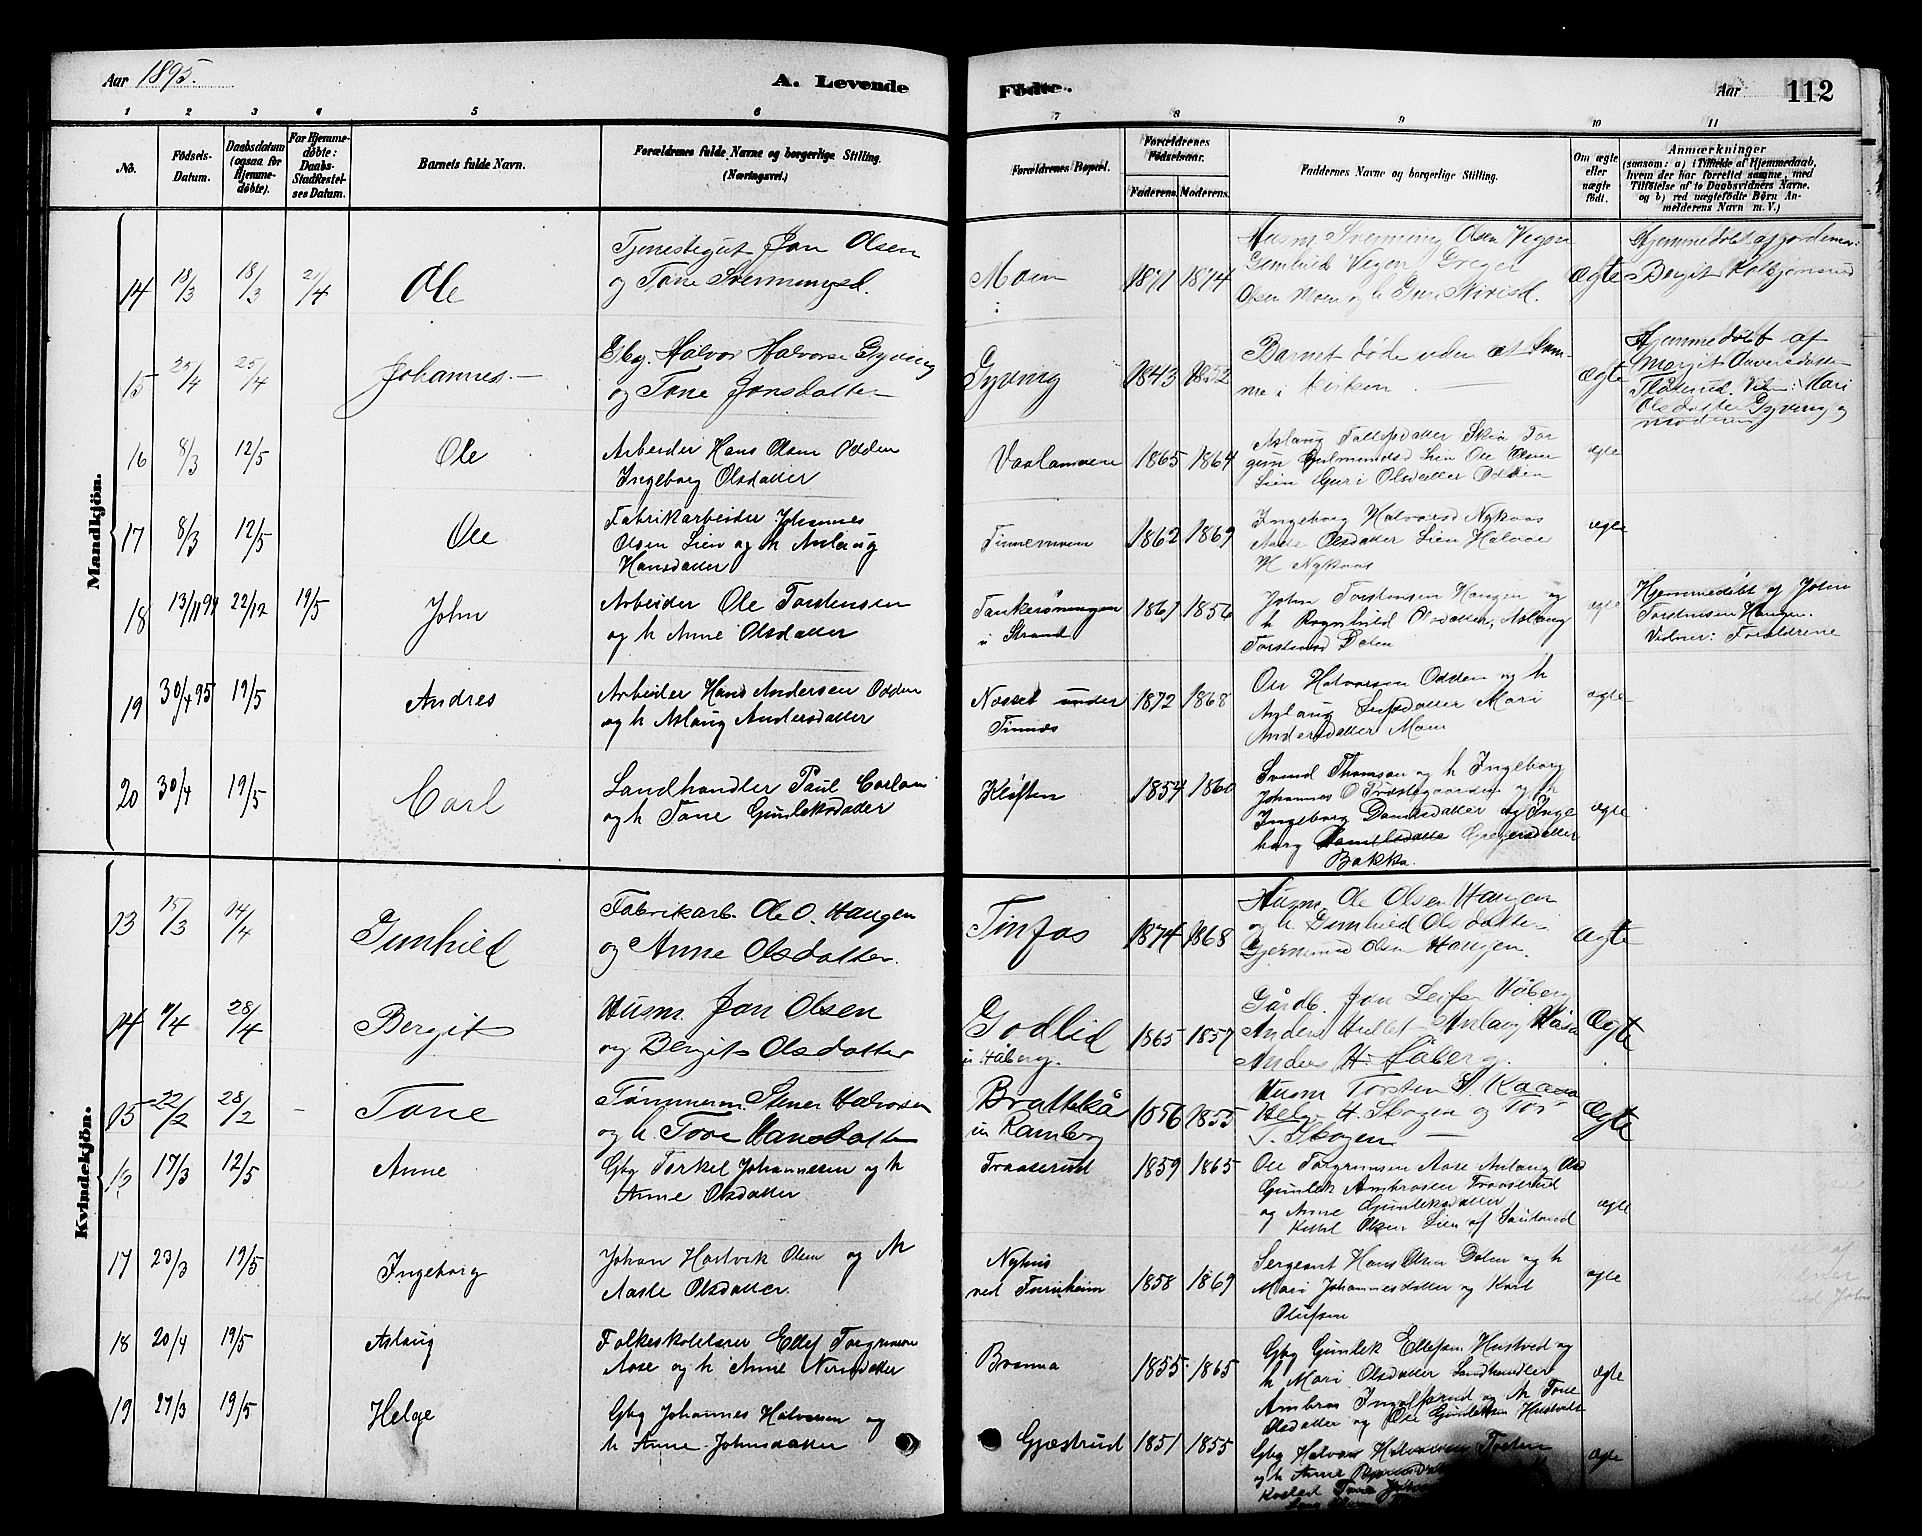 Aar 1895.
A. Levende
Fødte.
Aar
112
1 2 3 4 5 6 7 8 9 10 11
No.
Fødsels-
Datum.
Daabsdatum
(ogsaa for
Hjemme-
døbte).
For Hjemme-
døbte:
Daabs-
Stadfæstel-
ses Datum.
Barnets fulde Navn.
Forældrenes fulde Navne og borgerlige Stilling.
(Næringsvei.)
Forældrenes Bopæl.
Forældrenes
Fødselsaar.
Faderens. Moderens.
Faddernes Navne og borgerlige Stilling.
Om ægte
eller
uægte
født.
Anmærkninger
(saasom: a) i Tilfælde af Hjemmedaab,
hvem der har forrettet samme, med
Tilføielse af to Daabsvidners Navne.
og b) ved uægtefødte Børn An-
melderens Navn m. V.)
Mandkjön.
14 18/3 18/3 21/4 Ole
Tjenestegut Jon Olsen
og Tone
Moen
1871 1874
Husm. Svenning Olsen Vegen
Gunhild Vegen Greger
Olsen Moen og h
Ægte
Hjemmedøbt af jordemor:
Bergit
15 25/4 25/4 Johannes.
Gbg. Halvor Halvorse Gyving
og Tone Jonsdatter
Gyving
1843 1852
Barnet døde uden at kom-
me i kirken
Ægte
Hjemmedøbt af
Margit
Vidn: Mari
Olsdatter Gyving og
moderen
16 8/3 12/5 Ole
Arbeider Hans Olsen Odden
Ingeborg Olsdatter
1865 1864
Aslaug
Lien Ole Olsen
Lien Guri Olsdatter Odden
ægte
17 8/3 12/5 Ole
Fabrikarbeider Johannes
Olsen Lien og h Aslaug
Hansdatter
Tinnemoen
1862 1869
Ingeborg Halvorsd Nykaas
Olsdatter Lien Halvor
H Nykaas
ægte
18 13/11 94 22/12 19/5 John
Arbeider Ole Torstensen
og h Anne Olsdatter
i Strand
1861 1856
John Torstensen Haugen og
h Ragnhild Olsdatter, Aslaug
Torstensd
ægte
Hjemmedøbt af John
Torstensen Haugen.
Vidner: Forældrene
19 30/4 95 19/5 Andres
Arbeider Hans Andersen Odden
og h Aslaug Andersdatter
Næsset under
Tinnes
1872 1868
Ole Halvorsen Odden og h
Aslaug Leifsdatter Mari
Andersdatter Moen
ægte
20 30/4 19/5 Carl
Landhandler Paul Carlsen
og h Tone Gunleksdatter
Kløften
1854 1860
Svend Thomsen og h Ingeborg
Johannes O Præstegaarden og h
Ingeborg Danielsdatter og Inge
borg Gregersdatter
Bakka.
ægte
Kvindekjön.
13 15/3 14/4 Gunhild
Fabrikarb. Ole O. Haugen
og Anne Olsdatter.
Tinfos
1874 1868
Husm. Ole Olsen Haugen
og h. Gunhild Olsdatter
Gjermund Olsen Haugen.
Ægte
14 4/4 28/4 Bergit
Husm. Jon Olsen
og Bergit Olsdatter
Godlid
u Håberg.
1865 1857
Gårdb. Jon Leifsen Håberg
Anders Hullet Aslaug
Anders H. Håberg.
Ægte
15 22/2 28/2 Tone
Tømmerm. Stener Halvorsen
og h. Tone Hansdatter
Brattekås
u Ramberg
1856 1855
Husm Torsten
Helge H. Skogen og
T. Skogen
Ægte
16 17/3 12/5 Anne
Gbg Torkel Johannesen og h
Anne Olsdatter
Traaserud
1859 1865
Ole Torgrimsen Aase Aslaug Olsd
Gunlek Ambrosen Traaserud
og Anne Gunleksdatter
Kittel Olsen Lien af Sauland
ægte
17 23/3 19/5 Ingeborg
Johan Hartvik Olsen og h
Aasle Olsdatter
Nyhus
ved Furuheim
1858 1869
Sergeant Hans Olsen Dalen og h
Mari Johannesdatter og Karl
Olufsen
ægte
18 20/4 19/5 Aslaug
Folkeskolelærer Ellef Torgrimsen
Aase og h Anne Nirisdatter
1855 1865
Gbg Gunlek Ellefsen Hustved og
h Mari Olsdatter Landhandler
Ambros Ingolfsrud og h Tone
Olsdatter og Ole Gunleksen Hustvedt
ægte
19 27/3 19/5 Helge
Gbg Johannes Halvorsen og
h Anne Johnsdatter
Gjæstrud
1851 1855
Gbg Halvor Halvorsen
og h Anne
Tone
ægte